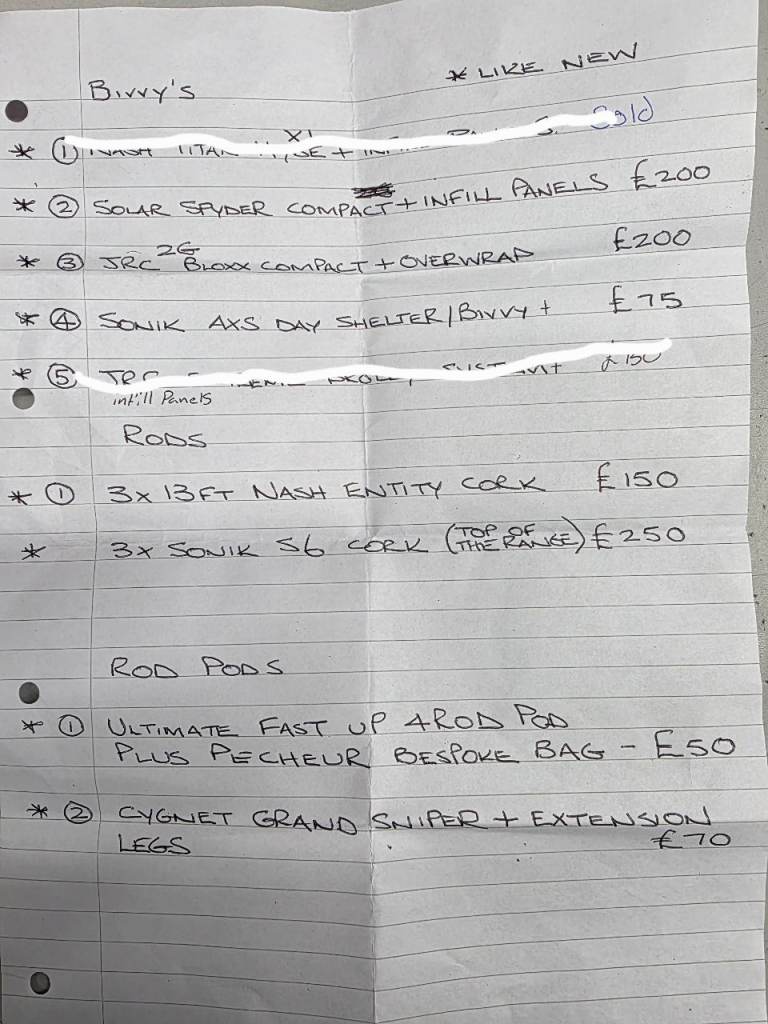 Bivvy's * LIKE NEW
* ① NASH TITAN XL + Sold
* ② SOLAR SPYDER COMPACT + INFILL PANELS £200
* ③ JRC 2G BLOXX COMPACT + OVERWRAP £200
* ④ SONIK AXS DAY SHELTER/BIVVY + £75
* ⑤ JRC £150
infill Panels
RODS
* ① 3x 13FT NASH ENTITY CORK £150
* 3x SONIK S6 CORK (TOP OF THE RANGE) £250
ROD PODS
* ① ULTIMATE FAST UP 4ROD POD
PLUS PECHEUR BESPOKE BAG - £50
* ② CYGNET GRAND SNIPER + EXTENSION
LEGS £70